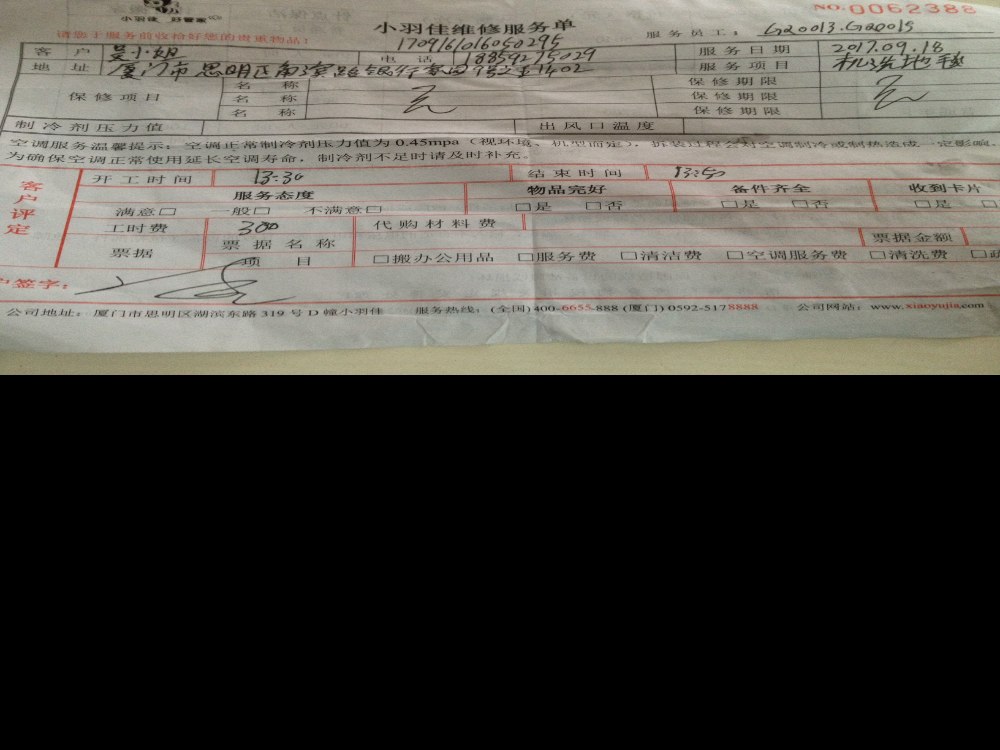 小羽佳 好管家
小羽佳维修服务单
NO.0062388
请您于服务前收拾好您的贵重物品!
170916016050295
服务员工: G20013.G20015
客户 吴小姐 电话 18859275029 服务日期 2017.09.18
地址 厦门市思明区 路银行 1402 服务项目 机洗地毯
保修项目 名称 无 保修期限 无
名称 保修期限
名称 保修期限
制冷剂压力值 出风口温度
空调服务温馨提示:空调正常制冷剂压力值为0.45mpa(视环境、机型而定),拆装过程会对空调制冷或制热造成一定影响,
为确保空调正常使用延长空调寿命,制冷剂不足时请及时补充。
客户评定
开工时间 13:30 结束时间
服务态度 物品完好 备件齐全 收到卡片
满意□ 一般□ 不满意□ □是 □否 □是 □否 □是 □
工时费 300 代购材料费
票据 票据名称 票据金额
项目 □搬办公用品 □服务费 □清洁费 □空调服务费 □清洗费 □
户签字:
公司地址:厦门市思明区湖滨东路319号D幢小羽佳 服务热线:(全国)400-6655-888 (厦门)0592-5178888 公司网站:www.xiaoyujia.com